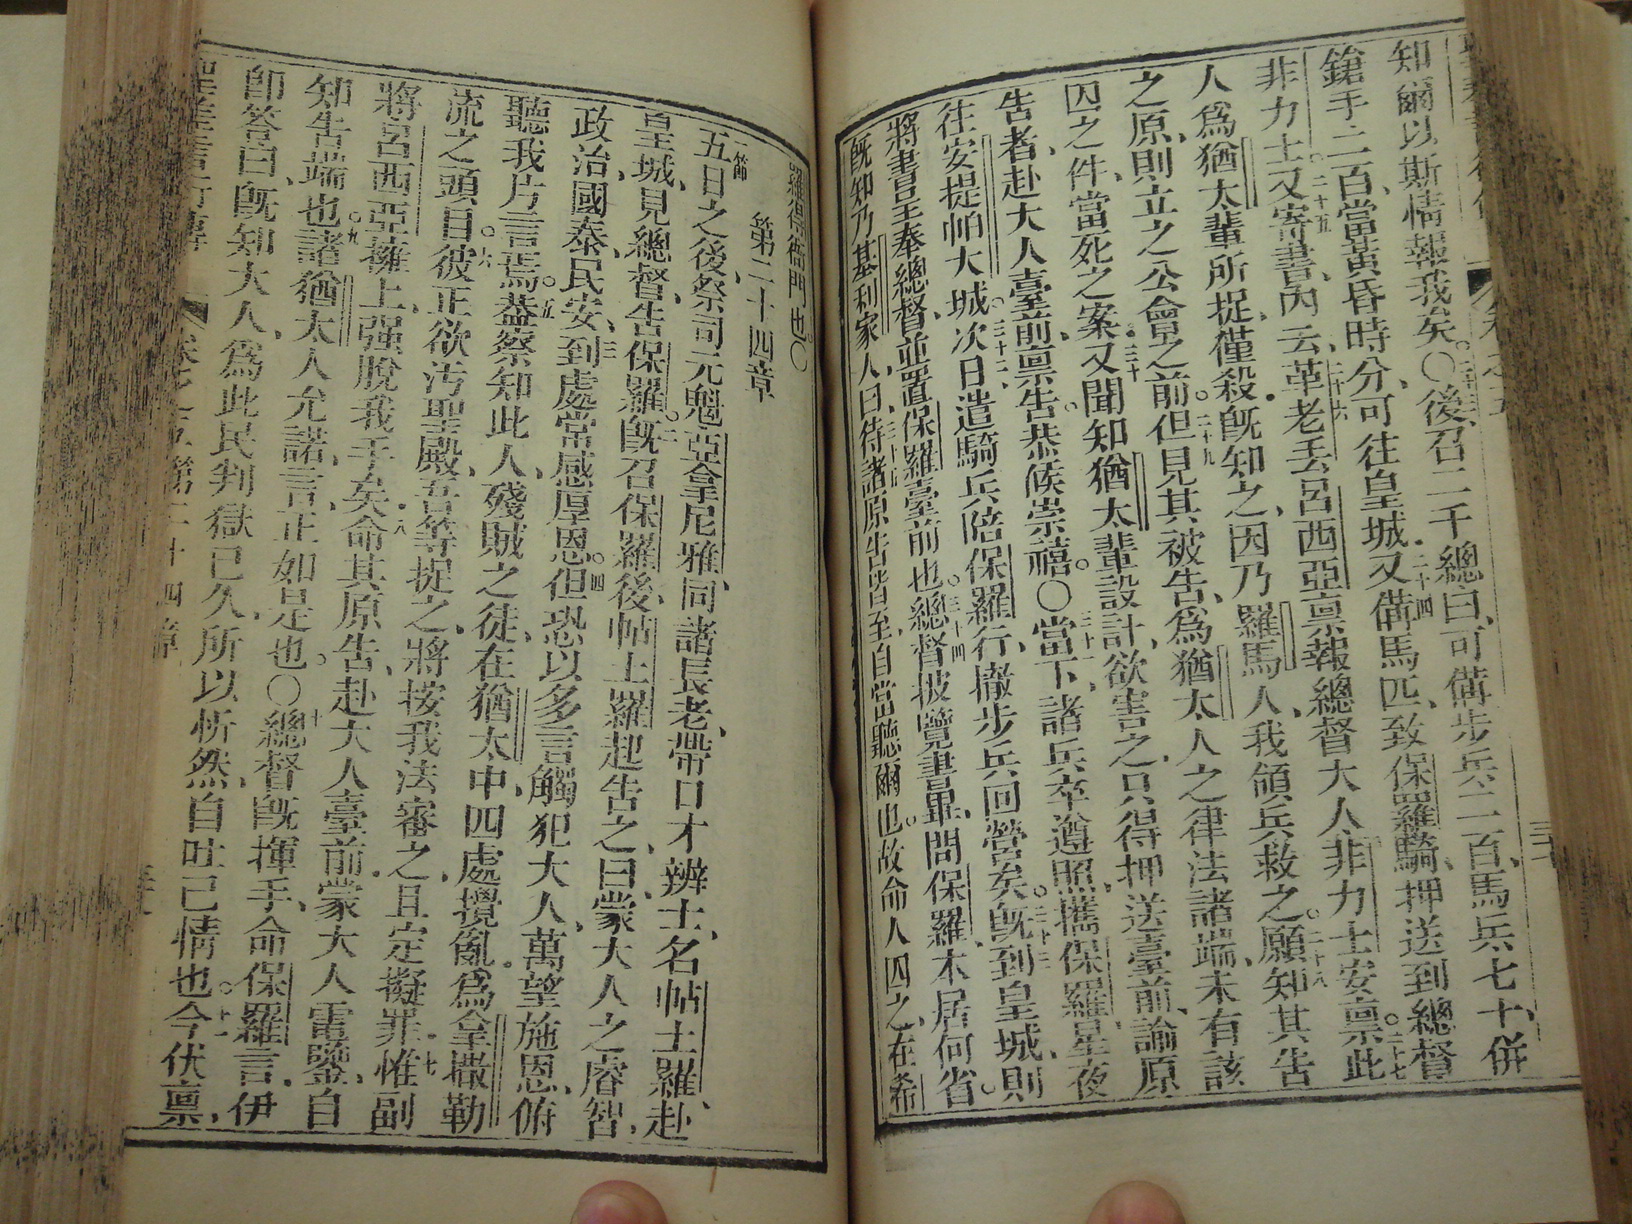 知爾以斯情報我矣。〇後召二千總曰、可備步兵二百、馬兵七十、併
鎗手二百、當黃昏時分、可往皇城。二十四又備馬匹、致保羅騎、押送到總督
非力士。二十五又寄書內云、二十六革老丟呂西亞稟報總督大人非力士安。二十七稟此
人爲猶太輩所捉、僅殺、旣知之、因乃羅馬人、我領兵救之。二十八願知其告
之原、則立之公會之前。二十九但見其被告、爲猶太人之律法諸端、未有該
囚之件、當死之案。三十又聞知猶太輩設計、欲害之、只得押送臺前、論原
告者、赴大人臺前稟告。恭候崇禧。〇三十一當下、諸兵卒遵照、攜保羅、星夜
往安提帕大城。三十二次日遣騎兵陪保羅行、撤步兵回營矣。三十三旣到皇城、則
將書呈奉總督、並置保羅臺前也。三十四總督披覽書畢、問保羅本居何省。
旣知乃基利家人、曰、待諸原告皆至、自當聽爾也。故命人囚之、在希
羅得衙門也。〇
第二十四章
一節五日之後、祭司元魁亞拿尼雅、同諸長老、帶口才辨士、名帖土羅、赴
皇城、見總督、告保羅。二旣召保羅後、帖土羅起告之曰、蒙大人之睿智、
政治國泰民安、三到處常感厚恩。四但恐以多言觸犯大人、萬望施恩、俯
聽我片言焉。五蓋察知此人、殘賊之徒、在猶太中、四處攪亂、爲拿撒勒
流之頭目。六彼正欲汚聖殿、吾等捉之、將按我法審之、且定擬罪。七惟副
將呂西亞擁上、強脫我手矣。八命其原告、赴大人臺前、蒙大人電鑒、自
知告端也。九諸猶太人允諾、言正如是也。〇十總督旣揮手、命保羅言、伊
卽答曰、旣知大人、爲此民判獄已久、所以忻然自吐己情也。十一今伏稟、